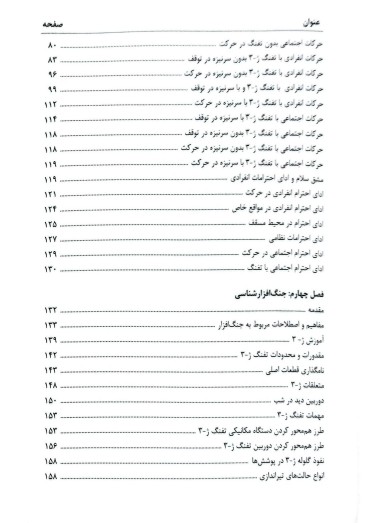 عنوان صفحه
حرکات اجتماعی بدون تفنگ در حرکت ۸۰
حرکات انفرادی با تفنگ ژ-۳ بدون سرنیزه در توقف ۸۳
حرکات انفرادی با تفنگ ژ-۳ بدون سرنیزه در حرکت ۹۶
حرکات انفرادی با تفنگ ژ-۳ و با سرنیزه در توقف ۹۹
حرکات انفرادی با تفنگ ژ-۳ با سرنیزه در حرکت ۱۱۲
حرکات اجتماعی با تفنگ ژ-۳ با سرنیزه در توقف ۱۱۴
حرکات اجتماعی با تفنگ ژ-۳ بدون سرنیزه در توقف ۱۱۸
حرکات اجتماعی با تفنگ ژ-۳ بدون سرنیزه در حرکت ۱۱۸
حرکات اجتماعی با تفنگ ژ-۳ با سرنیزه در حرکت ۱۱۹
مشق سلام و ادای احترامات انفرادی ۱۱۹
ادای احترام انفرادی در حرکت ۱۲۱
ادای احترام انفرادی در مواقع خاص ۱۲۴
ادای احترام در محیط مسقف ۱۲۵
ادای احترامات نظامی ۱۲۷
ادای احترام اجتماعی در حرکت ۱۲۹
ادای احترام اجتماعی با تفنگ ۱۳۰
فصل چهارم: جنگ‌افزارشناسی
مقدمه ۱۳۲
مفاهیم و اصطلاحات مربوط به جنگ‌افزار ۱۳۳
آموزش ژ-۳ ۱۳۹
مقدورات و محدودات تفنگ ژ-۳ ۱۴۲
نامگذاری قطعات اصلی ۱۴۳
متعلقات ژ-۳ ۱۴۸
دوربین دید در شب ۱۵۰
مهمات تفنگ ژ-۳ ۱۵۲
طرز هم‌محور کردن دستگاه مکانیکی تفنگ ژ-۳ ۱۵۳
طرز هم‌محور کردن دوربین تفنگ ژ-۳ ۱۵۶
نفوذ گلوله ژ-۳ در پوشش‌ها ۱۵۸
انواع حالت‌های تیراندازی ۱۵۸